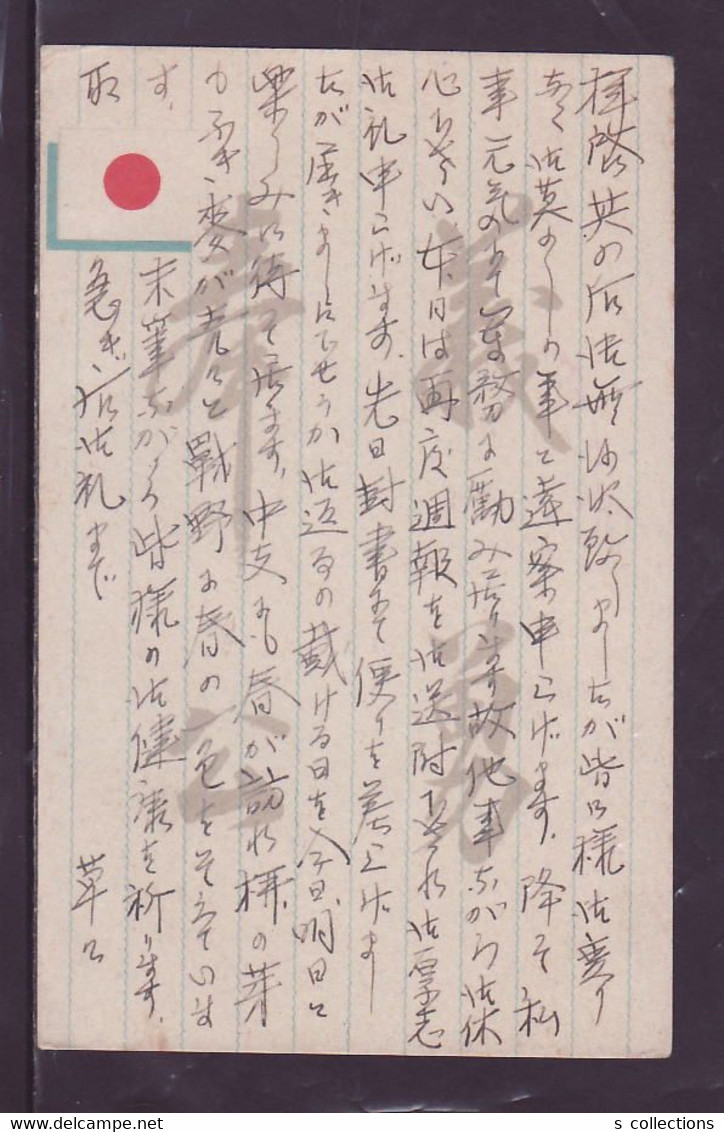 拝啓其の后御無沙汰致しましたが皆々様御変り
なく御暮しの事と遠察申上げます。降って私
事元気にて軍務に励み居ります故他事ながら御休
心下さい本日は再度週報を御送附下され御厚志
御礼申上げます。先日封書にて便りを差上げまし
たが届きましたでせうか御返事の戴ける日を今日明日と
楽しみに待って居ます。中支にも春が訪れ楊の芽
もふき麦が青々と戦野に春の色をそえていま
す。末筆ながら皆様の御健康を祈ります。
取急ぎ右御礼まで 草々
義勇
奉公
s collections